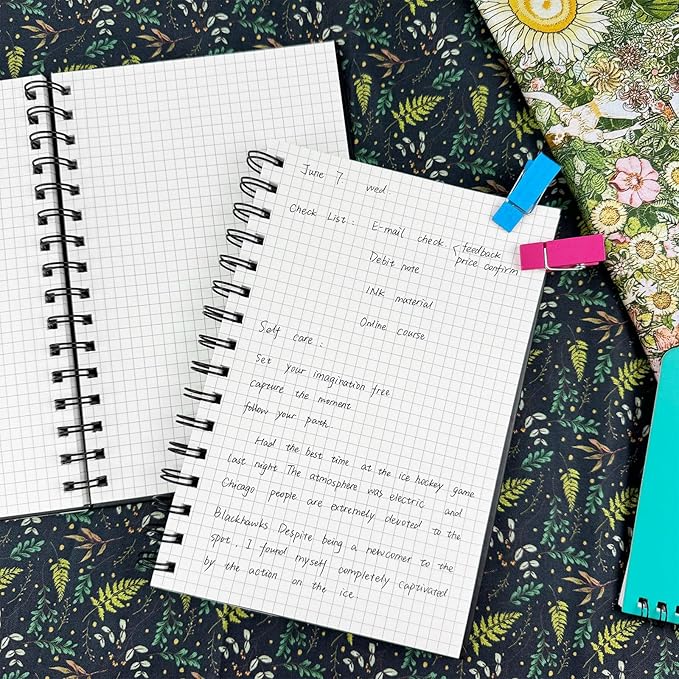 June 7 wed
Check List : E-mail check { feedback
price confirm
Debit note
INK material
Online course
Self care :
Set your imagination free
capture the moment
follow your path
Had the best time at the ice hockey game
last night The atmosphere was electric and
Chicago people are extremely devoted to the
Blackhawks. Despite being a newcomer to the
spot, I found myself completely captivated
by the action on the ice.